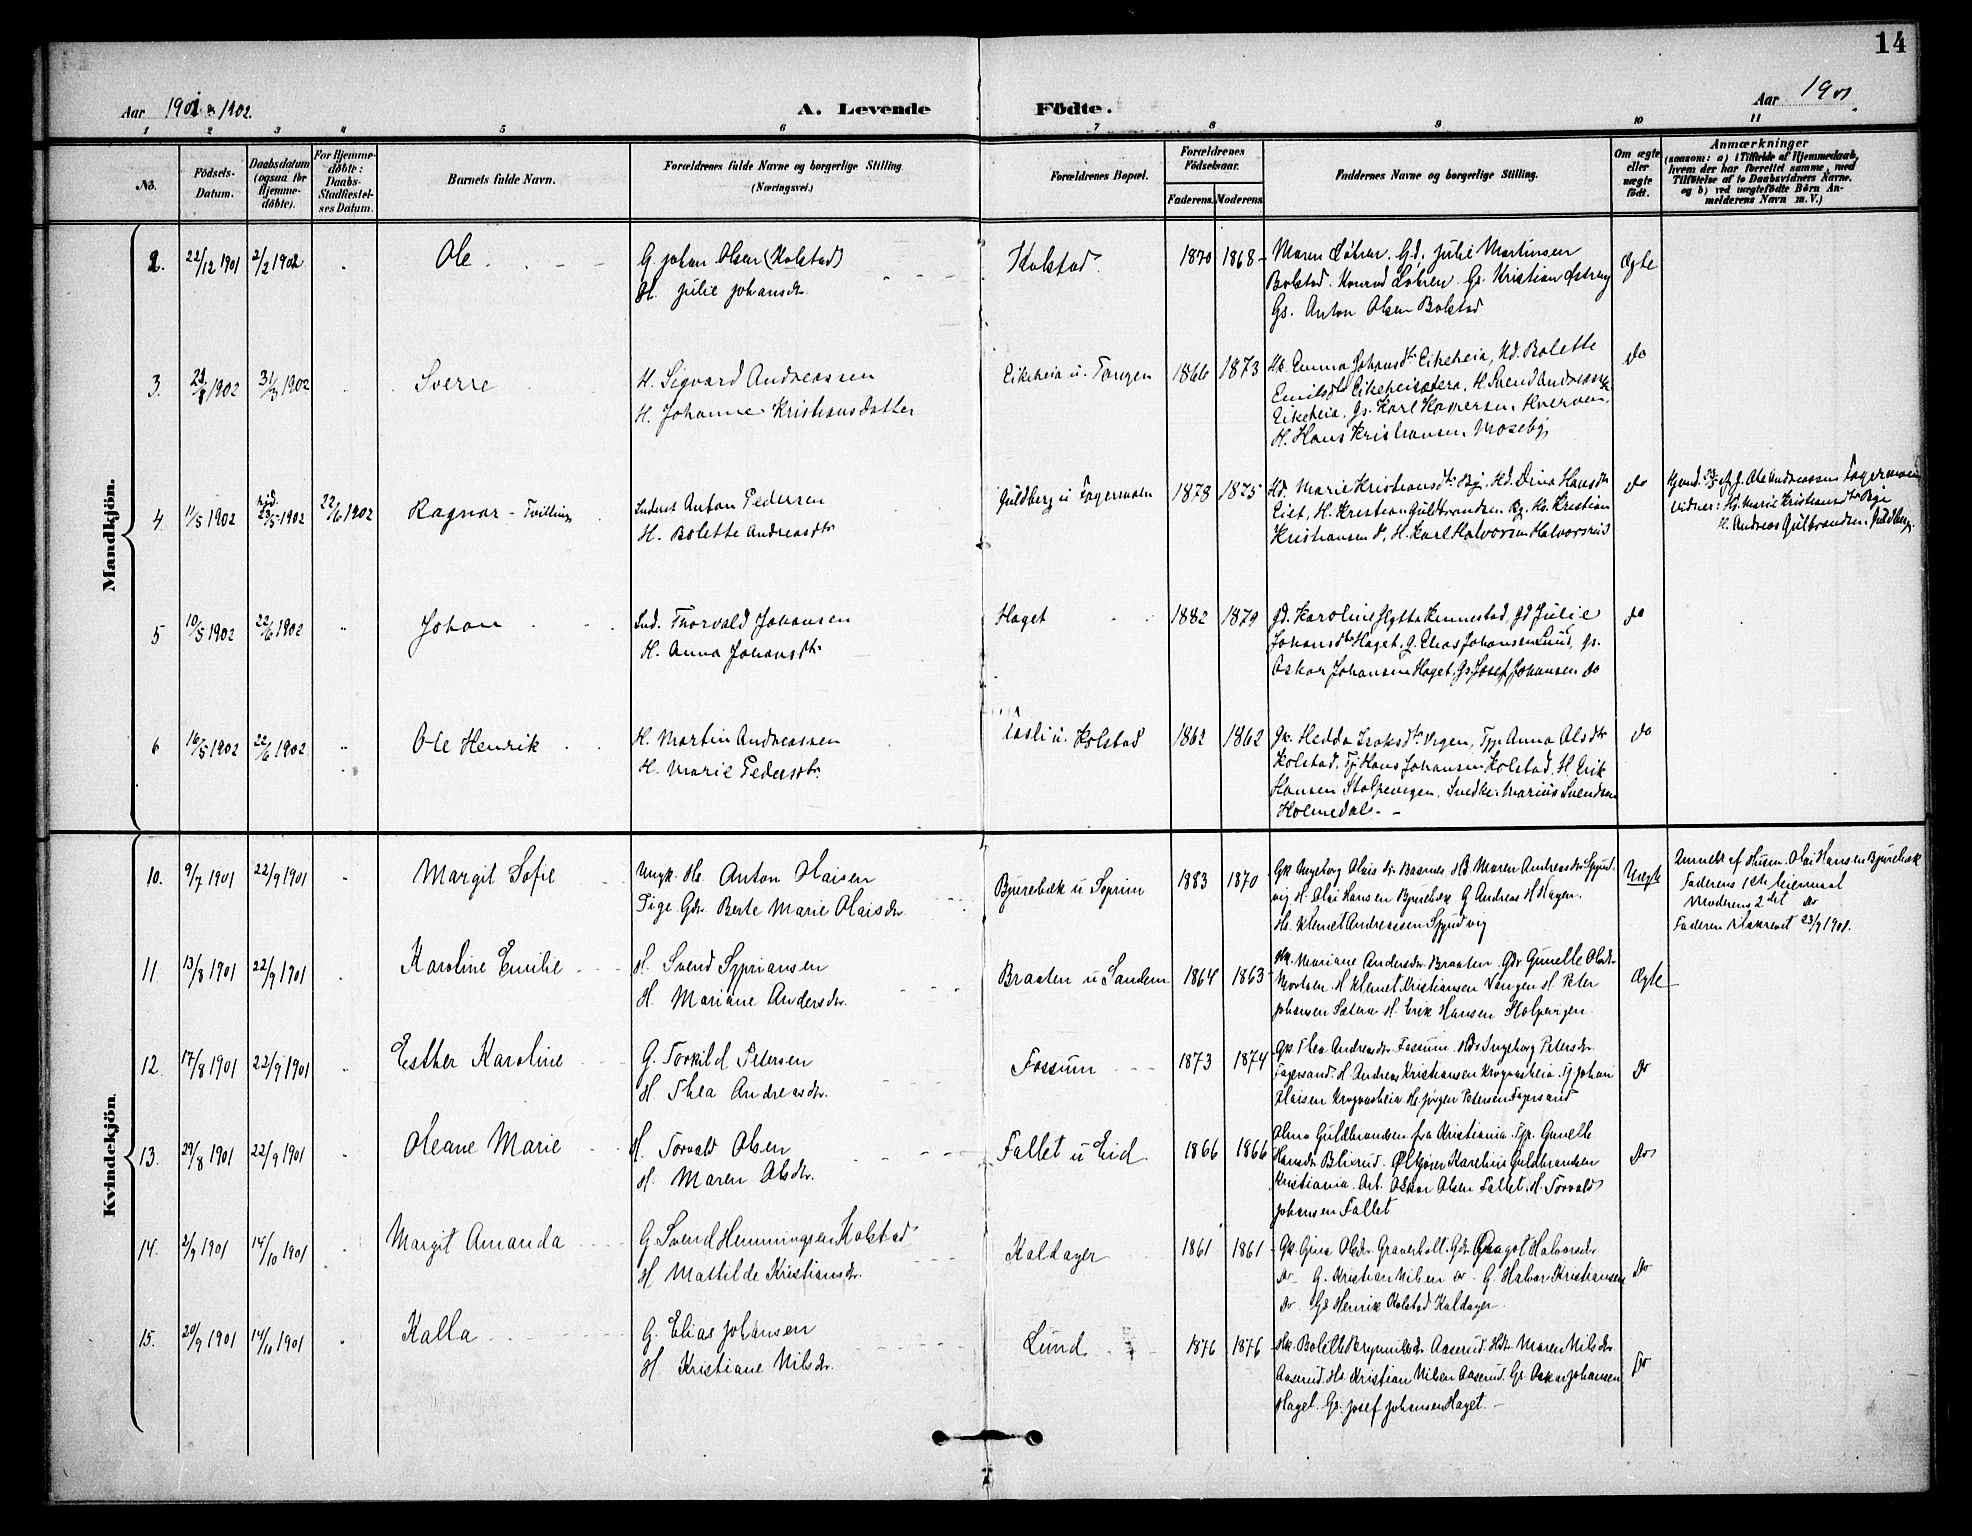 14
Aar 1901 & 1902.
A. Levende Födte.
Aar 1901.
1 2 3 4 5 6 7 8 9 10 11
No.
Födsels-Datum.
Daabsdatum (ogsaa for Hjemme-döbte).
For Hjemme-döbte: Daabs-Stadfæstel-ses Datum.
Barnets fulde Navn.
Forældrenes fulde Navne og borgerlige Stilling.
(Næringsvei.)
Forældrenes Bopæl.
Forældrenes Födselsaar.
Faderens. Moderens.
Faddernes Navne og borgerlige Stilling.
Om ægte eller uægte födt.
Anmærkninger
(saasom: a) i Tilfælde af Hjemmedaab,
hvem der har forrettet samme, med
Tilföielse af to Daabsvidners Navne,
og b) ved uægtefödte Börn An-
melderens Navn m.V.)
Mandkjön.
2. 22/12 1901 2/2 1902 Ole
G. Johan Olsen (Kolstad)
H. Julie Johansdr.
Kolstad. 1870 1868
Maren Løhren. Gd. Julie Martinsen
Bolstad. Konrad Løhren. Gs. Kristian
Gs. Anton Olsen Bolstad
Ægte
3. 1902 31/3 1902 Sverre
H. Sigvard Andreassen
H. Johanne Kristiansdatter
Eikeheia u. Tangen 1866 1873
Hk. Emma Johansdtr Eikeheia, Kd. Bolette
Emilsdtr Eikeheisætera, H. Svend Andreassen
Eikeheia, Gs. Karl
H. Hans Kristiansen Moseby
do
4 11/5 1902 23/5 1902 22/6 1902 Ragnar - Tvilling
Inderst Anton Pedersen
H. Bolette Andreasdtr
Guldberg u Fagermoen 1878 1875
Hd. Marie Kristiansdtr Bg. Hd. Dina Hansdtr
Eiet, H. Kristian Gulbrandsen Bg. Hs. Kristian
Kristiansen d., H. Karl Halvorsen Halvorsrud
do
Hjemd. af G. Ole Andreassen Fagermoen
Vidner: Hd. Marie Kristiansdtr Bge
H. Andreas Gulbrandsen, Guldberg.
5 10/5 1902 22/6 1902 Johan
Ind. Thorvald Johansen
H. Anna Johansdtr
Haget 1882 1879
Gd. Karoline Hytta Kennestad, Gd Julie
Johansdtr Haget, G. Elias Johansen Lund, Gs.
Oskar Johansen Haget, Gs. Josef Johansen do
do
6 16/5 1902 22/6 1902 Ole Henrik
H. Martin Andreassen
H. Marie Pedersdtr.
u. Kolstad 1862 1862
Gk. Hedda Isaksdtr Vegen, Tjp. Anna Olsdtr
Kolstad, Tj Hans Johansen Kolstad, H Erik
Hansen Stolpevegen, Snedker Marius Svendsen
Holmedal.
do
Kvindekjön.
10. 9/7 1901 22/9 1901 Margit Sofie
Ungk. Hs. Anton Olaisen
Pige Gdr. Berte Marie Olaisdr
Bjurebæk u Soprim 1883 1870
Gk Ingeborg Olaisdr. Basmos Hd Maren Andreasdr
vig H Olai Hansen Bjurebæk G Andreas H Hagen.
Hs. Klemet Andreassen Spjudvig
Uægte
Anmeldt af Husm. Olai Hansen Bjurebæk
Faderens 1ste leiermaal
Moderens 2det do
Faderen tilskrevet 23/9 1901.
11. 13/8 1901 22/9 1901 Karoline Emilie
H. Svend Sypriansen
H. Mariane Andersdr.
Braaten u Sandem 1864 1863
Hk. Mariane Andersdr. Braaten. Gdr Gunelle Olsdr
H Klemet Kristiansen Vengen H. Peter
Johansen Sætera H. Erik Hansen Stolpevigen
Ægte
12. 17/8 1901 22/9 1901 Esther Karoline
G. Torkild Petersen
H Thea Andreasdr.
Fossum 1873 1874
Gk. Thea Andreasdr Fossum. Hdr Ingeborg Petersdr
Fagersand. H. Andreas Kristiansen Krogvasheia. Tj Johan
Olaisen Krogvasheia Hs. Jørgen Petersen Fagersand
do
13. 29/8 1901 22/9 1901 Oleane Marie
H. Torvald Olsen
H. Maren Olsdr.
Fallet u Eid 1866 1866
Olma Guldbrandsen fra Kristiania. Tjp. Gunelle
Hansdr Blixrud. Ølkjører Karelius Guldbrandsen
Kristiania. Arb. Oskar Olsen Fallet. H. Torvald
Johansen Fallet
do
14. 2/9 1901 14/10 1901 Margit Amanda
G Svend Hemmingsen Kolstad
H Mathilde Kristiansdr.
Kaldager 1861 1861
Gk. Gina Olsdr. Graverholt. Gdr. Halvorsdr
do G. Kristian Nilsen do. G. Halvor Kristiansen
do Gs Henrik Kolstad Kaldager
do
15. 20/9 1901 14/10 1901 Kalla
G. Elias Johansen
H Kristiane Nilsdr.
Lund 1876 1876
Hk. Bolette Brynnildsdr Aaserud. Hdr. Maren Nilsdr
Aaserud. Hs. Kristian Nilsen Aaserud. Gs. Oskar Johansen
Haget. Gs. Josef Johansen Haget.
do